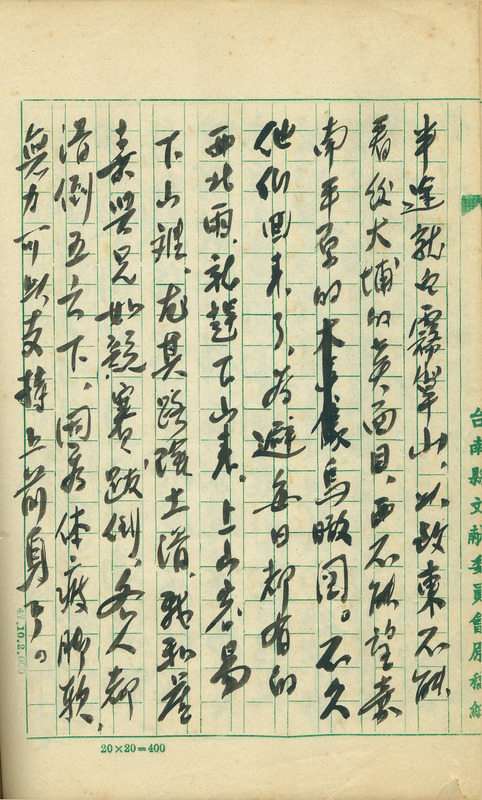 半途就白霧罩山，以致東不能
看後大埔的真面目，西不能望嘉
南平原的鳥瞰圖。不久
他們回來了，為避每日都有的
西北雨，就趕下山來。上山容易
下山難，尤其路陡土滑，我和
吳兄如競賽跌倒，各人都
滑倒五六下，同為体疲脚軟，
無力可以支持上前身了。
台南縣文献委員會原稿紙
47.10.2.000
20×20=400